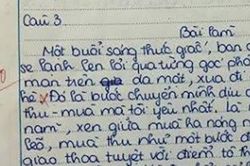 Câu 3
Bài làm
Một buổi sáng thức giấc, ban
se lạnh len lỏi qua từng góc phố
man trên da mát, xua đi
hè. Đó là bước chuyển mình dịu d
thu - mùa mà tôi yêu nhất. là s
nam, xen giữa mùa hạ nóng n
lẽo, mùa thu như một bước đ
giao thoa tuyệt vời: điểm tô n